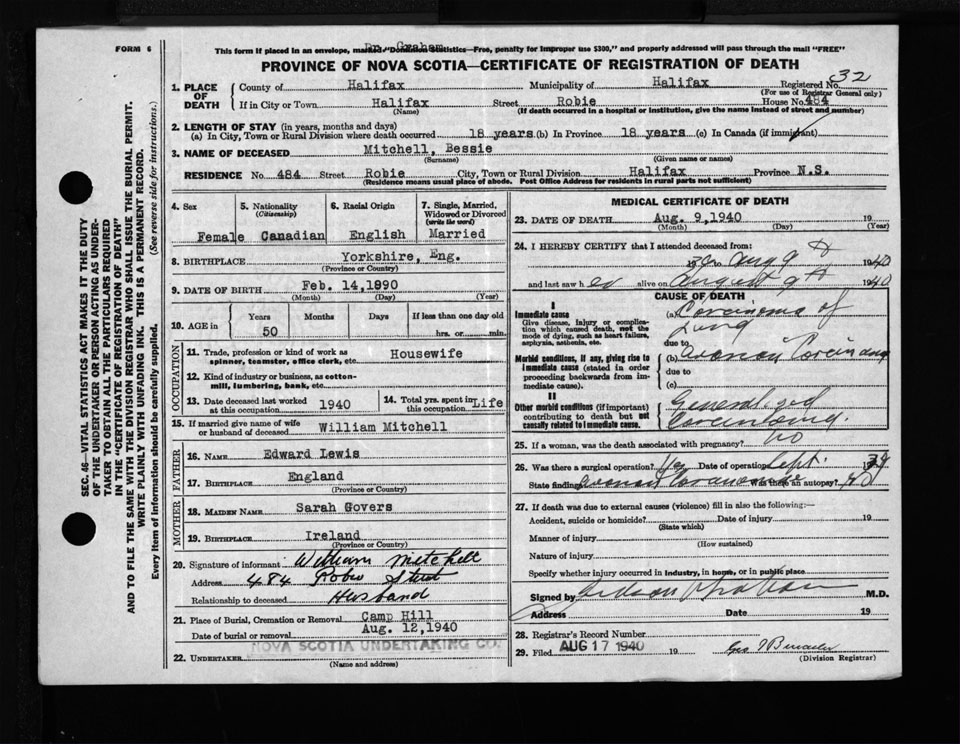 FORM 6
Dr. Graham
This form if placed in an envelope, marked "Dominion Statistics—Free, penalty for improper use $300," and properly addressed will pass through the mail "FREE"
PROVINCE OF NOVA SCOTIA—CERTIFICATE OF REGISTRATION OF DEATH
32
1. PLACE OF DEATH
County of Halifax Municipality of Halifax Registered No.
(For use of Registrar General only)
If in City or Town Halifax Street Robie House No. 484
(Name) (If death occurred in a hospital or institution, give the name instead of street and number)
2. LENGTH OF STAY (in years, months and days)
(a) In City, Town or Rural Division where death occurred 18 years (b) In Province 18 years (c) In Canada (if immigrant)
3. NAME OF DECEASED Mitchell, Bessie
(Surname) (Given name or names)
RESIDENCE No. 484 Street Robie City, Town or Rural Division Halifax Province N.S.
(Residence means usual place of abode. Post Office Address for residents in rural parts not sufficient)
4. Sex
Female
5. Nationality
(Citizenship)
Canadian
6. Racial Origin
English
7. Single, Married,
Widowed or Divorced
(write the word)
Married
8. BIRTHPLACE Yorkshire, Eng.
(Province or Country)
9. DATE OF BIRTH Feb. 14,1890
(Month) (Day) (Year)
10. AGE in
Years Months Days If less than one day old
50 hrs. or min.
OCCUPATION
11. Trade, profession or kind of work as
spinner, teamster, office clerk, etc. Housewife
12. Kind of industry or business, as cotton-
mill, lumbering, bank, etc.
13. Date deceased last worked
at this occupation 1940
14. Total yrs. spent in
this occupation Life
15. If married give name of wife
or husband of deceased William Mitchell
FATHER
16. Name Edward Lewis
17. Birthplace England
(Province or Country)
MOTHER
18. Maiden Name Sarah Govers
19. Birthplace Ireland
(Province or Country)
20. Signature of informant William Mitchell
Address 484 Robie Street
Relationship to deceased Husband
21. Place of Burial, Cremation or Removal Camp Hill
Date of burial or removal Aug. 12,1940
22. Undertaker NOVA SCOTIA UNDERTAKING CO.
(Name and address)
MEDICAL CERTIFICATE OF DEATH
23. DATE OF DEATH Aug. 9,1940 19
(Month) (Day) (Year)
24. I HEREBY CERTIFY that I attended deceased from:
Aug 9 1940
and last saw her alive on August 9 1940
CAUSE OF DEATH
I
Immediate cause
Give disease, injury or complica-
tion which caused death, not the
mode of dying, such as heart failure,
asphyxia, asthenia, etc.
(a) Carcinoma of
Lung
due to
Morbid conditions, if any, giving rise to
immediate cause (stated in order
proceeding backwards from im-
mediate cause).
(b) Ovarian Carcinoma
due to
(c)
II
Other morbid conditions (if important)
contributing to death but not
causally related to immediate cause.
Generalized
Carcinoma.
25. If a woman, was the death associated with pregnancy? no
26. Was there a surgical operation? Yes Date of operation Sept. 1939
State findings Ovarian Carcinoma Was there an autopsy? No
27. If death was due to external causes (violence) fill in also the following:—
Accident, suicide or homicide? Date of injury 19
(State which)
Manner of injury
(How sustained)
Nature of injury
Specify whether injury occurred in industry, in home, or in public place
Signed by Graham M.D.
Address Date 19
28. Registrar's Record Number
29. Filed AUG 17 1940 19
(Division Registrar)
SEC. 46—VITAL STATISTICS ACT MAKES IT THE DUTY
OF THE UNDERTAKER OR PERSON ACTING AS UNDER-
TAKER TO OBTAIN ALL THE PARTICULARS REQUIRED
IN THE "CERTIFICATE OF REGISTRATION OF DEATH"
AND TO FILE THE SAME WITH THE DIVISION REGISTRAR WHO SHALL ISSUE THE BURIAL PERMIT.
WRITE PLAINLY WITH UNFADING INK. THIS IS A PERMANENT RECORD.
Every item of information should be carefully supplied. (See reverse side for instructions.)